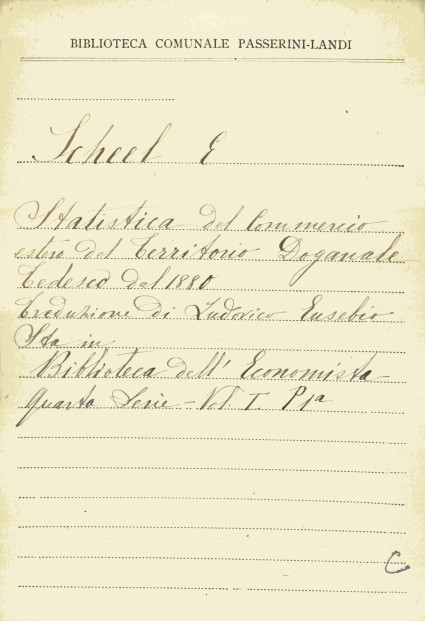 BIBLIOTECA COMUNALE PASSERINI-LANDI
Scheel E
Statistica del Commercio
estero del Territorio Doganale
Tedesco dal 1880
Traduzione di Ludovico Eusebio
Sta in
Biblioteca dell' Economista
Quarta Serie - Vol. I. P 1a
C